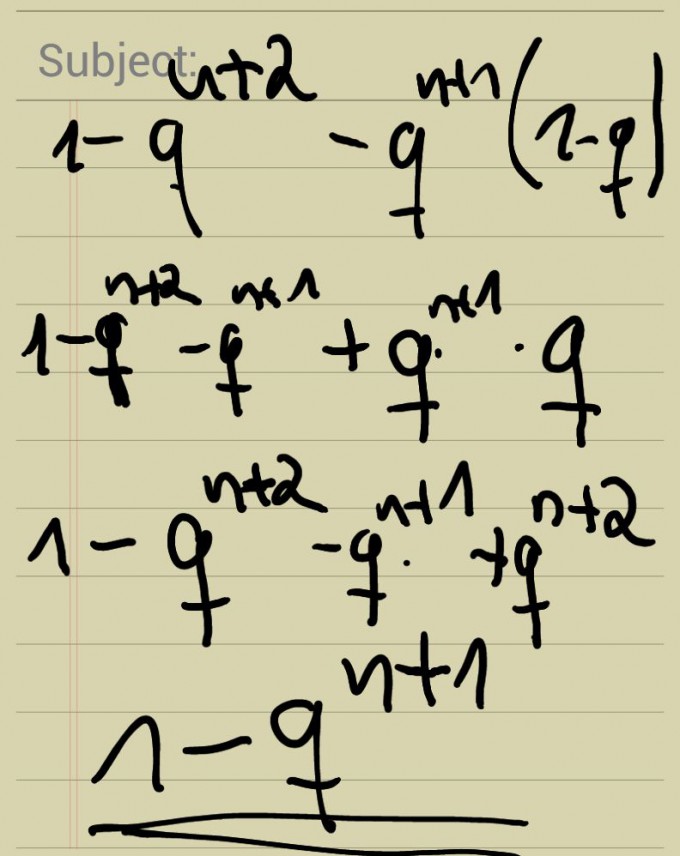 Subject:
1 - q^{n+2} - q^{n+1} (1 - q)
1 - q^{n+2} - q^{n+1} + q^{n+1} · q
1 - q^{n+2} - q^{n+1} + q^{n+2}
1 - q^{n+1}